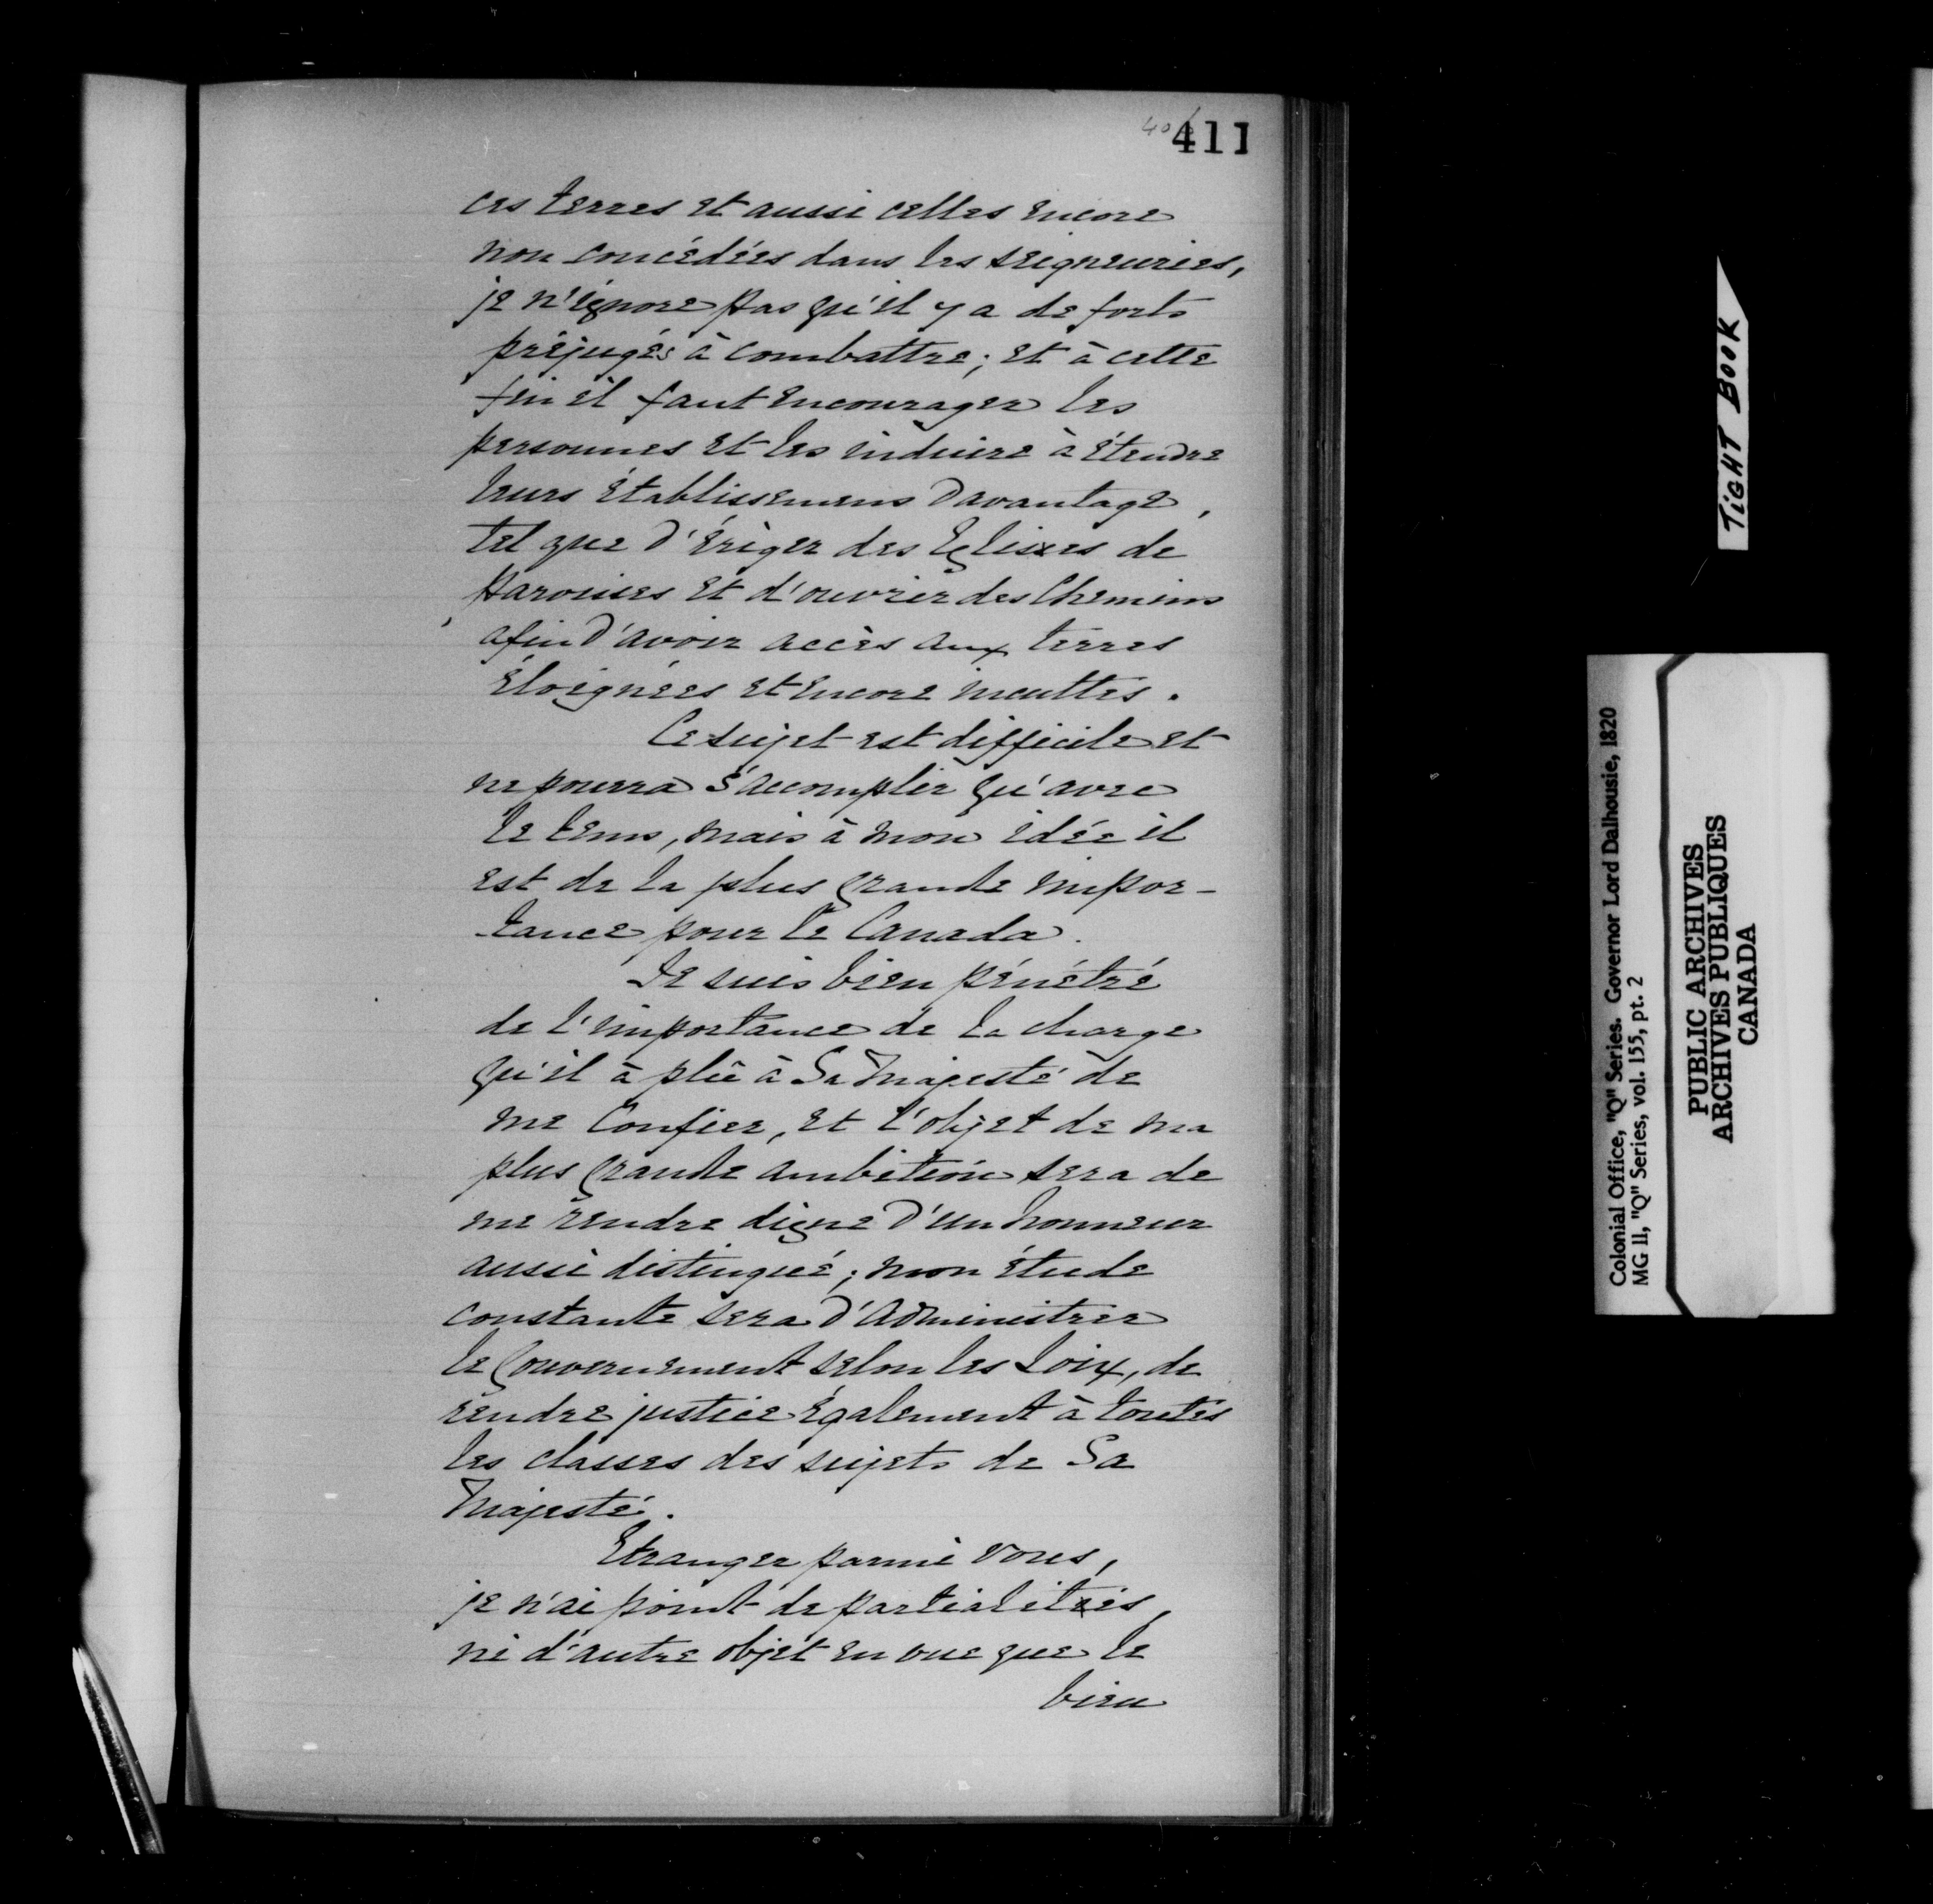 40
411
ces terres et aussi celles encore
non concédées dans les seigneuries,
je n'ignore pas qu'il y a de forts
préjugés à combattre; et à cette
fin il faut encourager les
personnes et les induire à étendre
leurs établissemens davantage,
tel que d'ériger des Eglises de
paroisses et d'ouvrir des Chemins
afin d'avoir accès aux terres
éloignées et encore incultes.
Ce sujet est difficile et
ne pourra s'accomplir qu'avec
le tems, mais à mon idée il
est de la plus grande impor-
-tance pour le Canada.
Je suis bien pénétré
de l'importance de la charge
qu'il à plû à Sa Majesté de
me Confier, et l'objet de ma
plus grande ambition sera de
me rendre digne d'un honneur
aussi distingué; mon étude
constante sera d'Administrer
le Gouvernement selon les Loix, de
rendre justice également à toutes
les classes des sujets de Sa
Majesté.
Etranger parmi vous,
je n'ai point de partialités,
ni d'autre objet en vue que le
bien
TIGHT BOOK
Colonial Office, "Q" Series. Governor Lord Dalhousie, 1820
MG 11, "Q" Series, vol. 155, pt. 2
PUBLIC ARCHIVES
ARCHIVES PUBLIQUES
CANADA